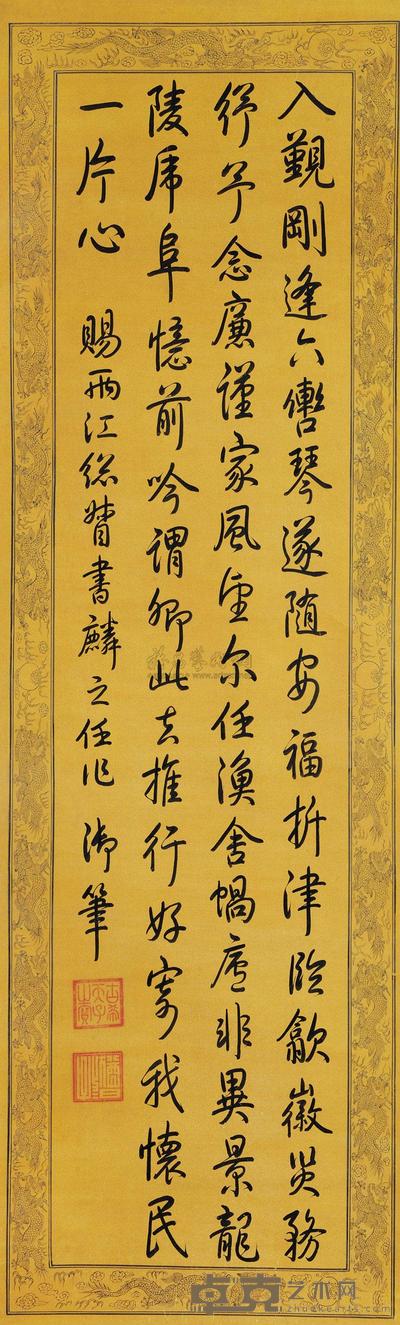 入覲剛逢六轡琴遂随安福析津臨歙徽災務
紓予念廉謹家風望尔任漁舍蝸廬非異景龍
陵虎阜憶前吟謂卿此去推行好寄我懷民
一片心 賜兩江緫督書麟之任作 御筆
卓克艺术网